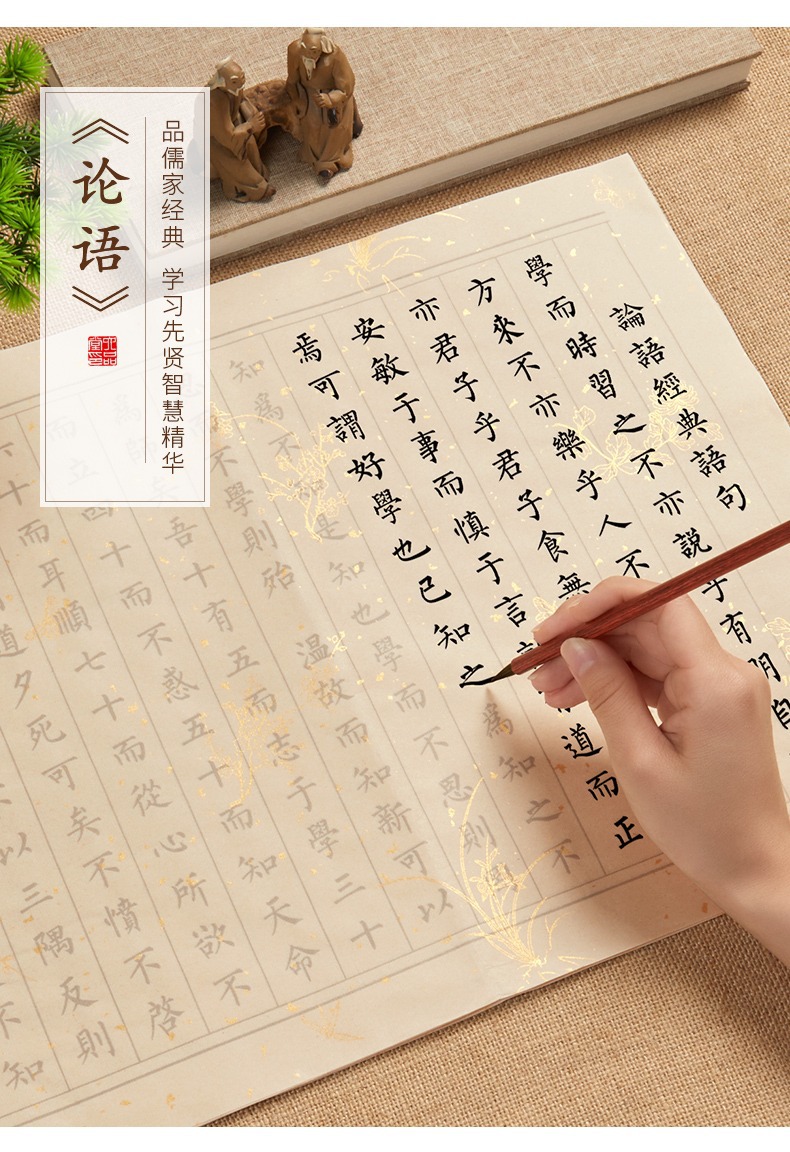 《论语》
品儒家经典 学习先贤智慧精华
論語經典語句
學而時習之不亦説乎有朋自
方來不亦樂乎人不
亦君子乎君子食無
安敏于事而慎于言道而正
焉可謂好學也已知之為知之不
知為不是知也學而不思則
不學則殆 温故而知新可以
為師矣吾十有五而志于學三十
而立四十而不惑五十而知天命
六十而耳順七十而從心所欲不
道夕死可矣不憤不啓
以三隅反則
不知